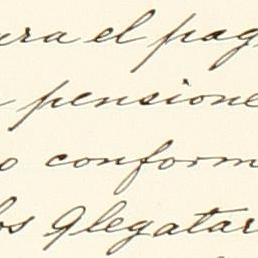 ura el pag
pensione
o conform
los legatar